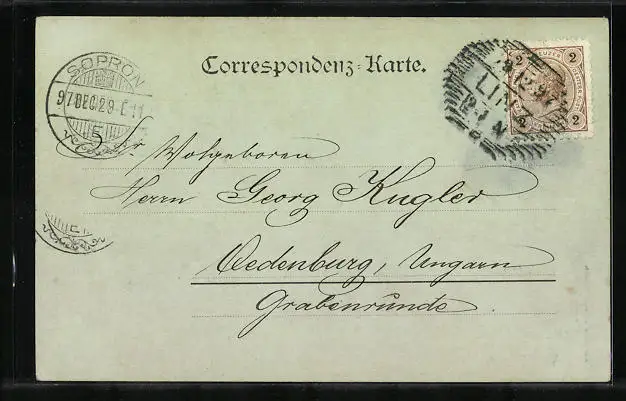 Correspondenz-Karte.
SOPRON
97 DEC 29 E 11
E
28.12.97
LINZ
2 KREUZER 2
2 2
Sr. Wolgeboren
Herrn Georg Kugler
Oedenburg, Ungarn
Grabenrunde